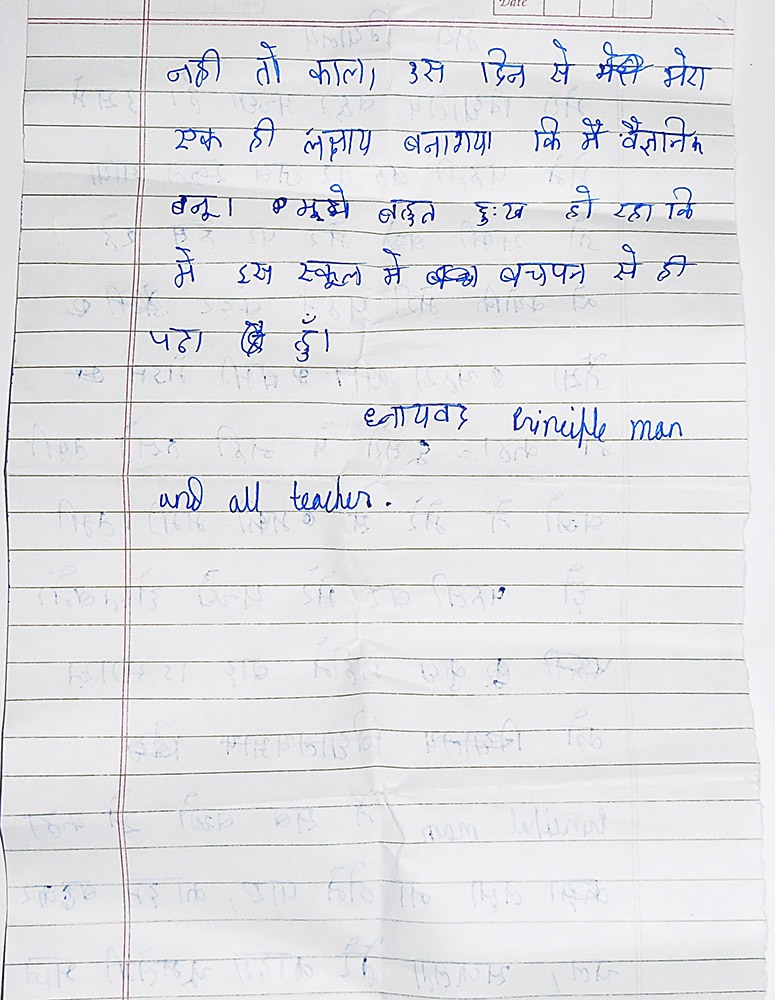 Date
नही तो काला, उस दिन से मेरा
एक ही लक्षाय बनागया कि मैं वैज्ञानिक
बनू। मूझे बहुत दुःख हो रहा कि
मे इस स्कूल मे बचपन से ही
पढा हूँ।
ध्नायवद Principle man
and all teacher.